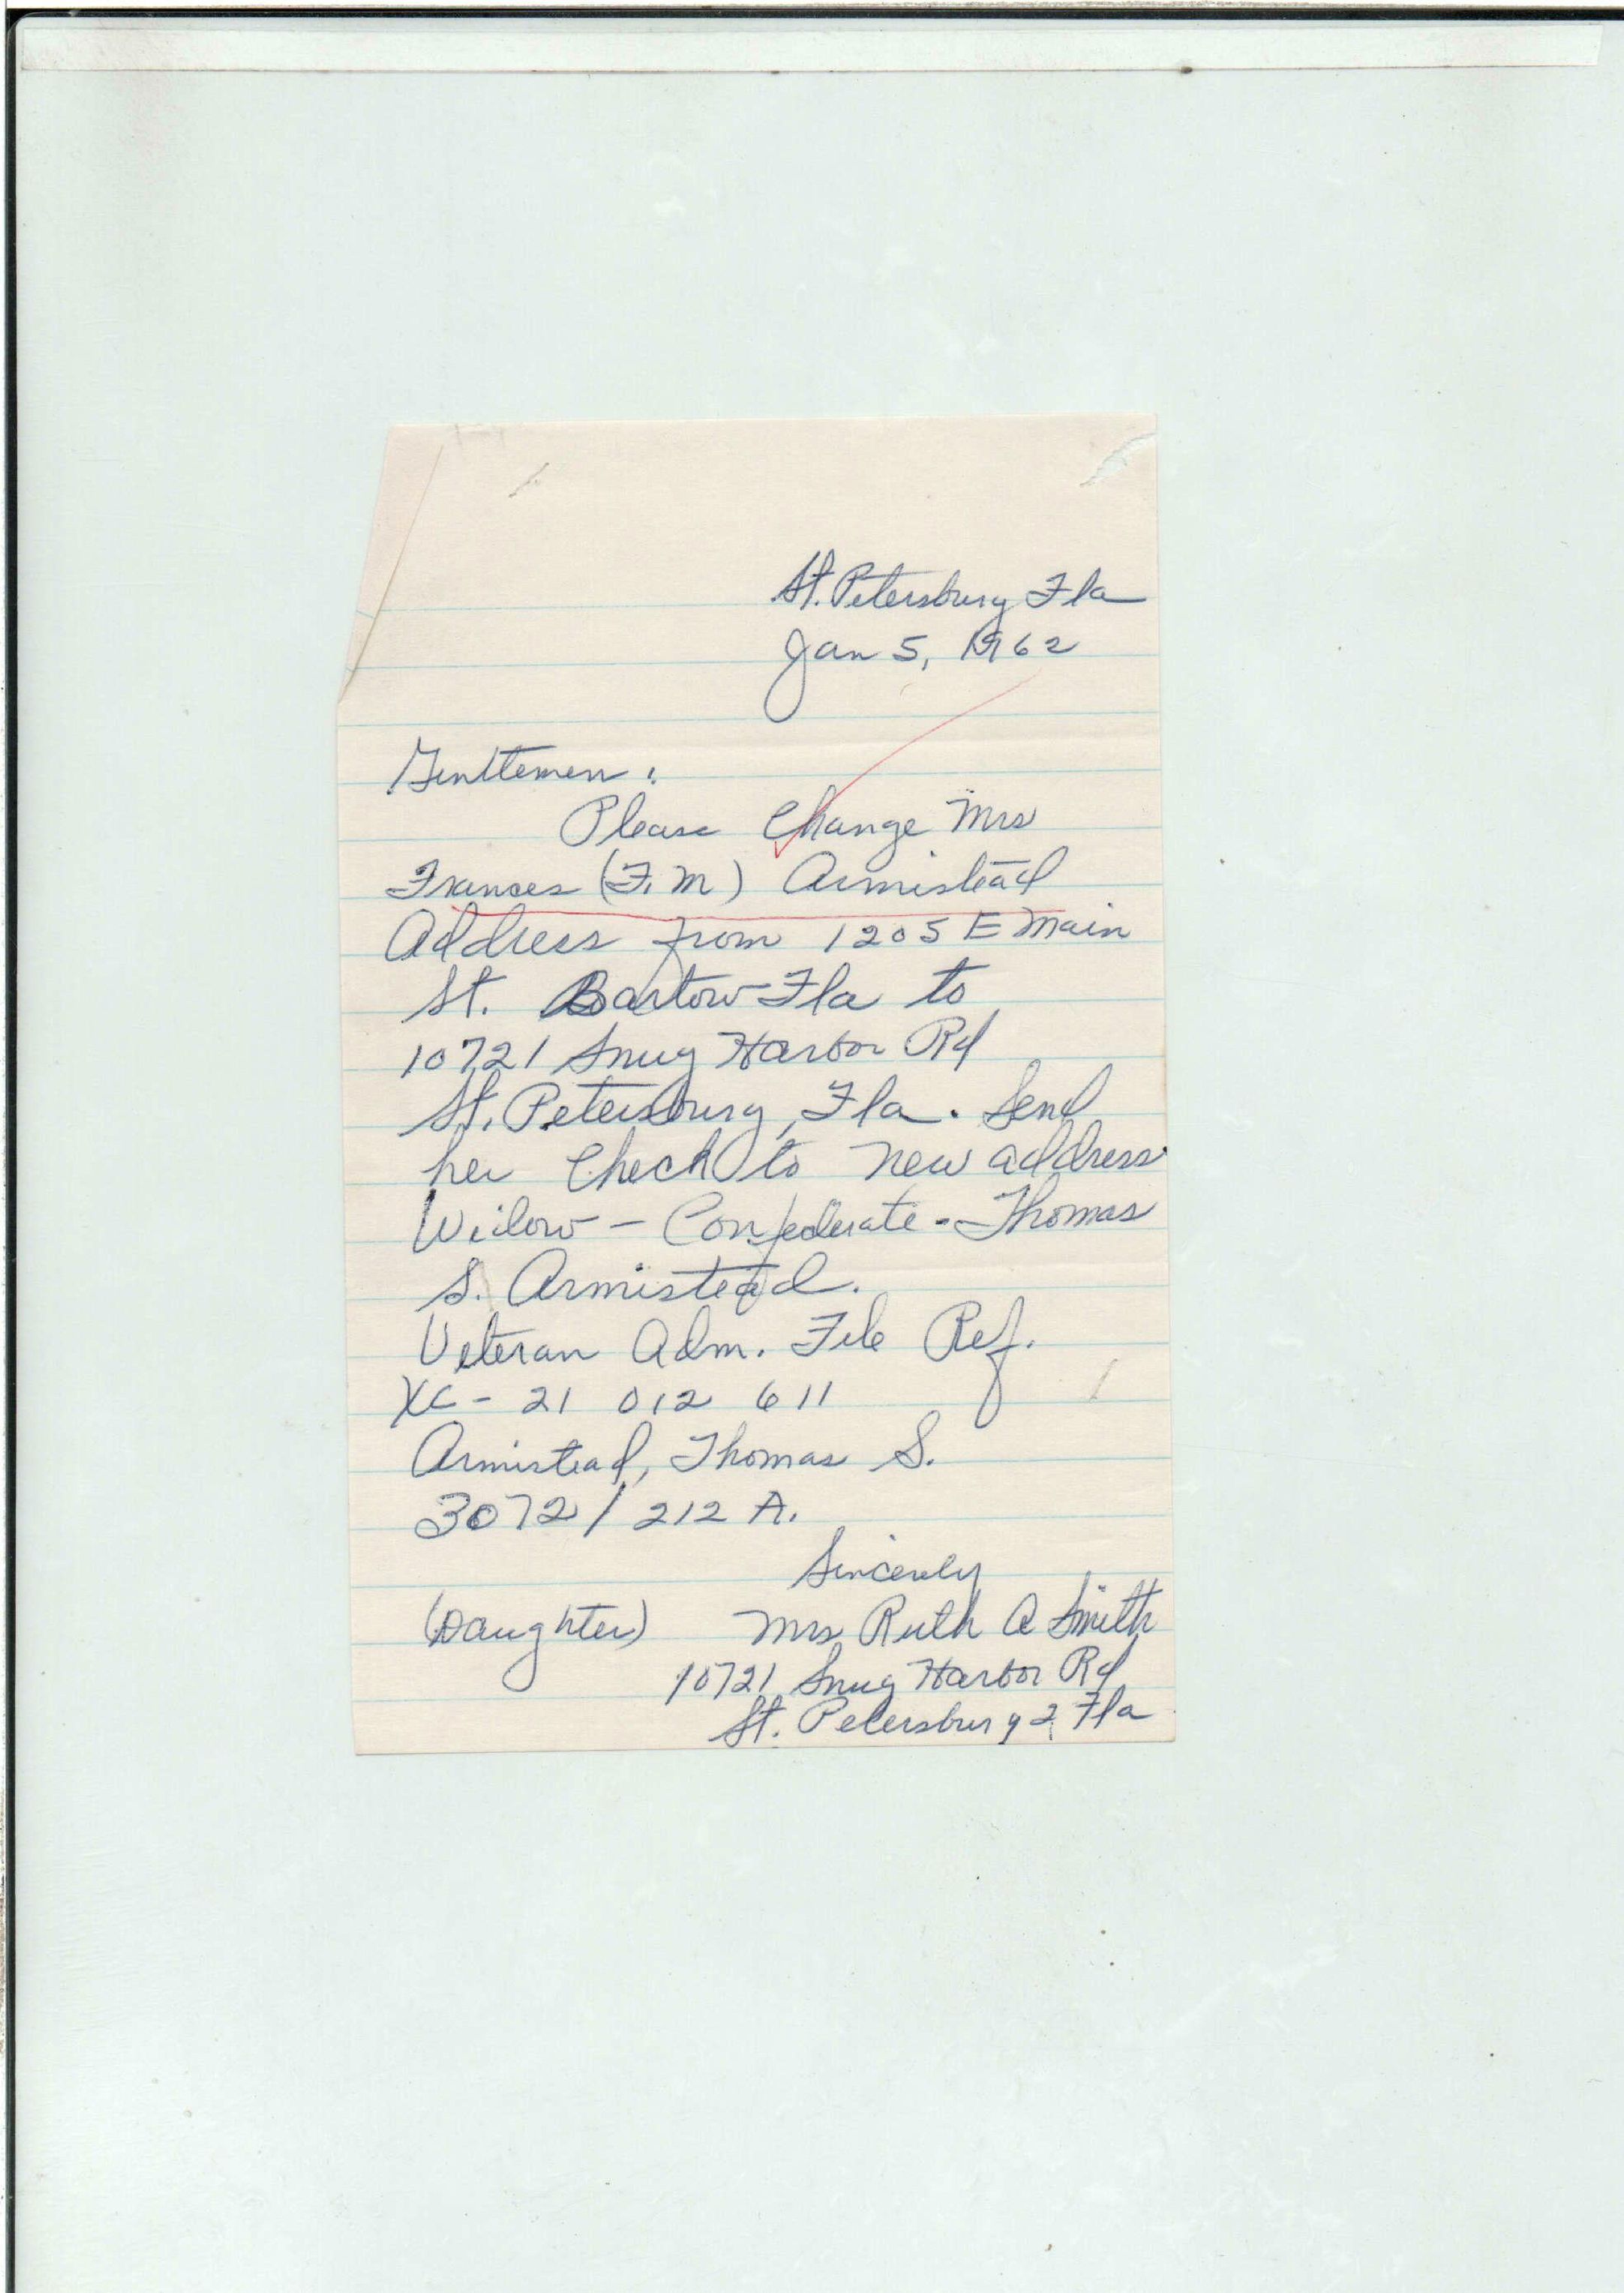 St. Petersburg Fla
Jan 5, 1962
Genttemen:
Please Change Mrs
Frances (F. M) Armistead
Address from 1205 E Main
St. Bartow Fla to
10721 Snug Harbor Rd
St. Petersburg, Fla. Send
her Check to new address
Widow - Confederate - Thomas
S. Armistead.
Veteran Adm. File Ref.
XC - 21 012 611
Armistead, Thomas S.
3072 / 212 A.
Sincerely
(Daughter) Mrs Ruth A Smith
10721 Snug Harbor Rd
St. Petersburg 2, Fla